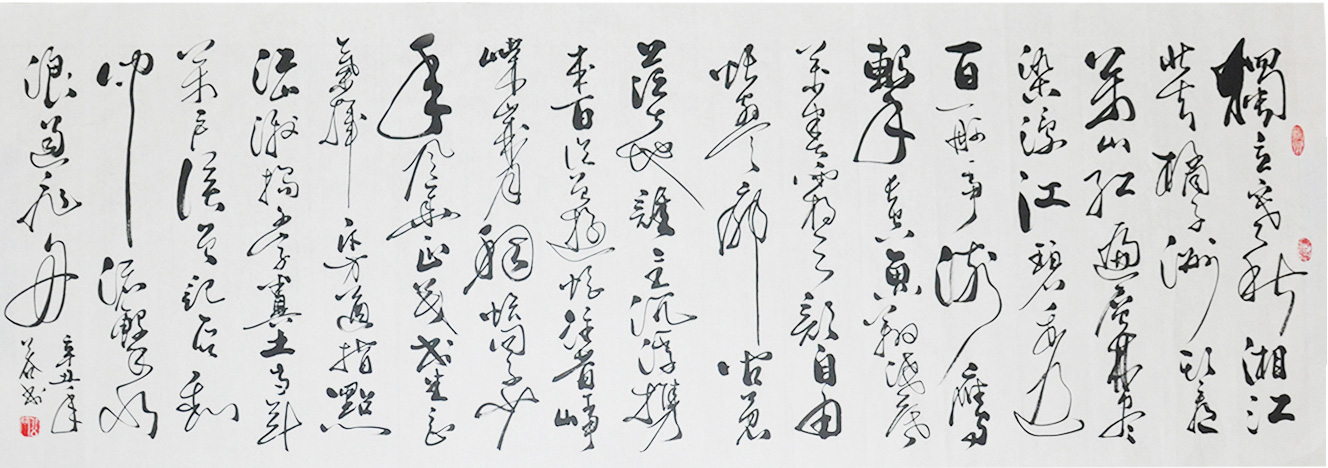 獨立寒秋湘江
北去橘子洲頭看
萬山紅遍層林盡
染漫江碧透
百舸爭流鷹
擊長空魚翔淺底
萬類霜天競自由
悵寥廓問蒼
茫大地誰主沉浮攜
來百侶曾遊憶往昔崢
嶸歲月稠恰同學少
年風華正茂書生意
氣揮斥方遒指點
江山激揚文字糞土當年
萬戶侯曾記否到
中流擊水
浪遏飛舟
辛丑年